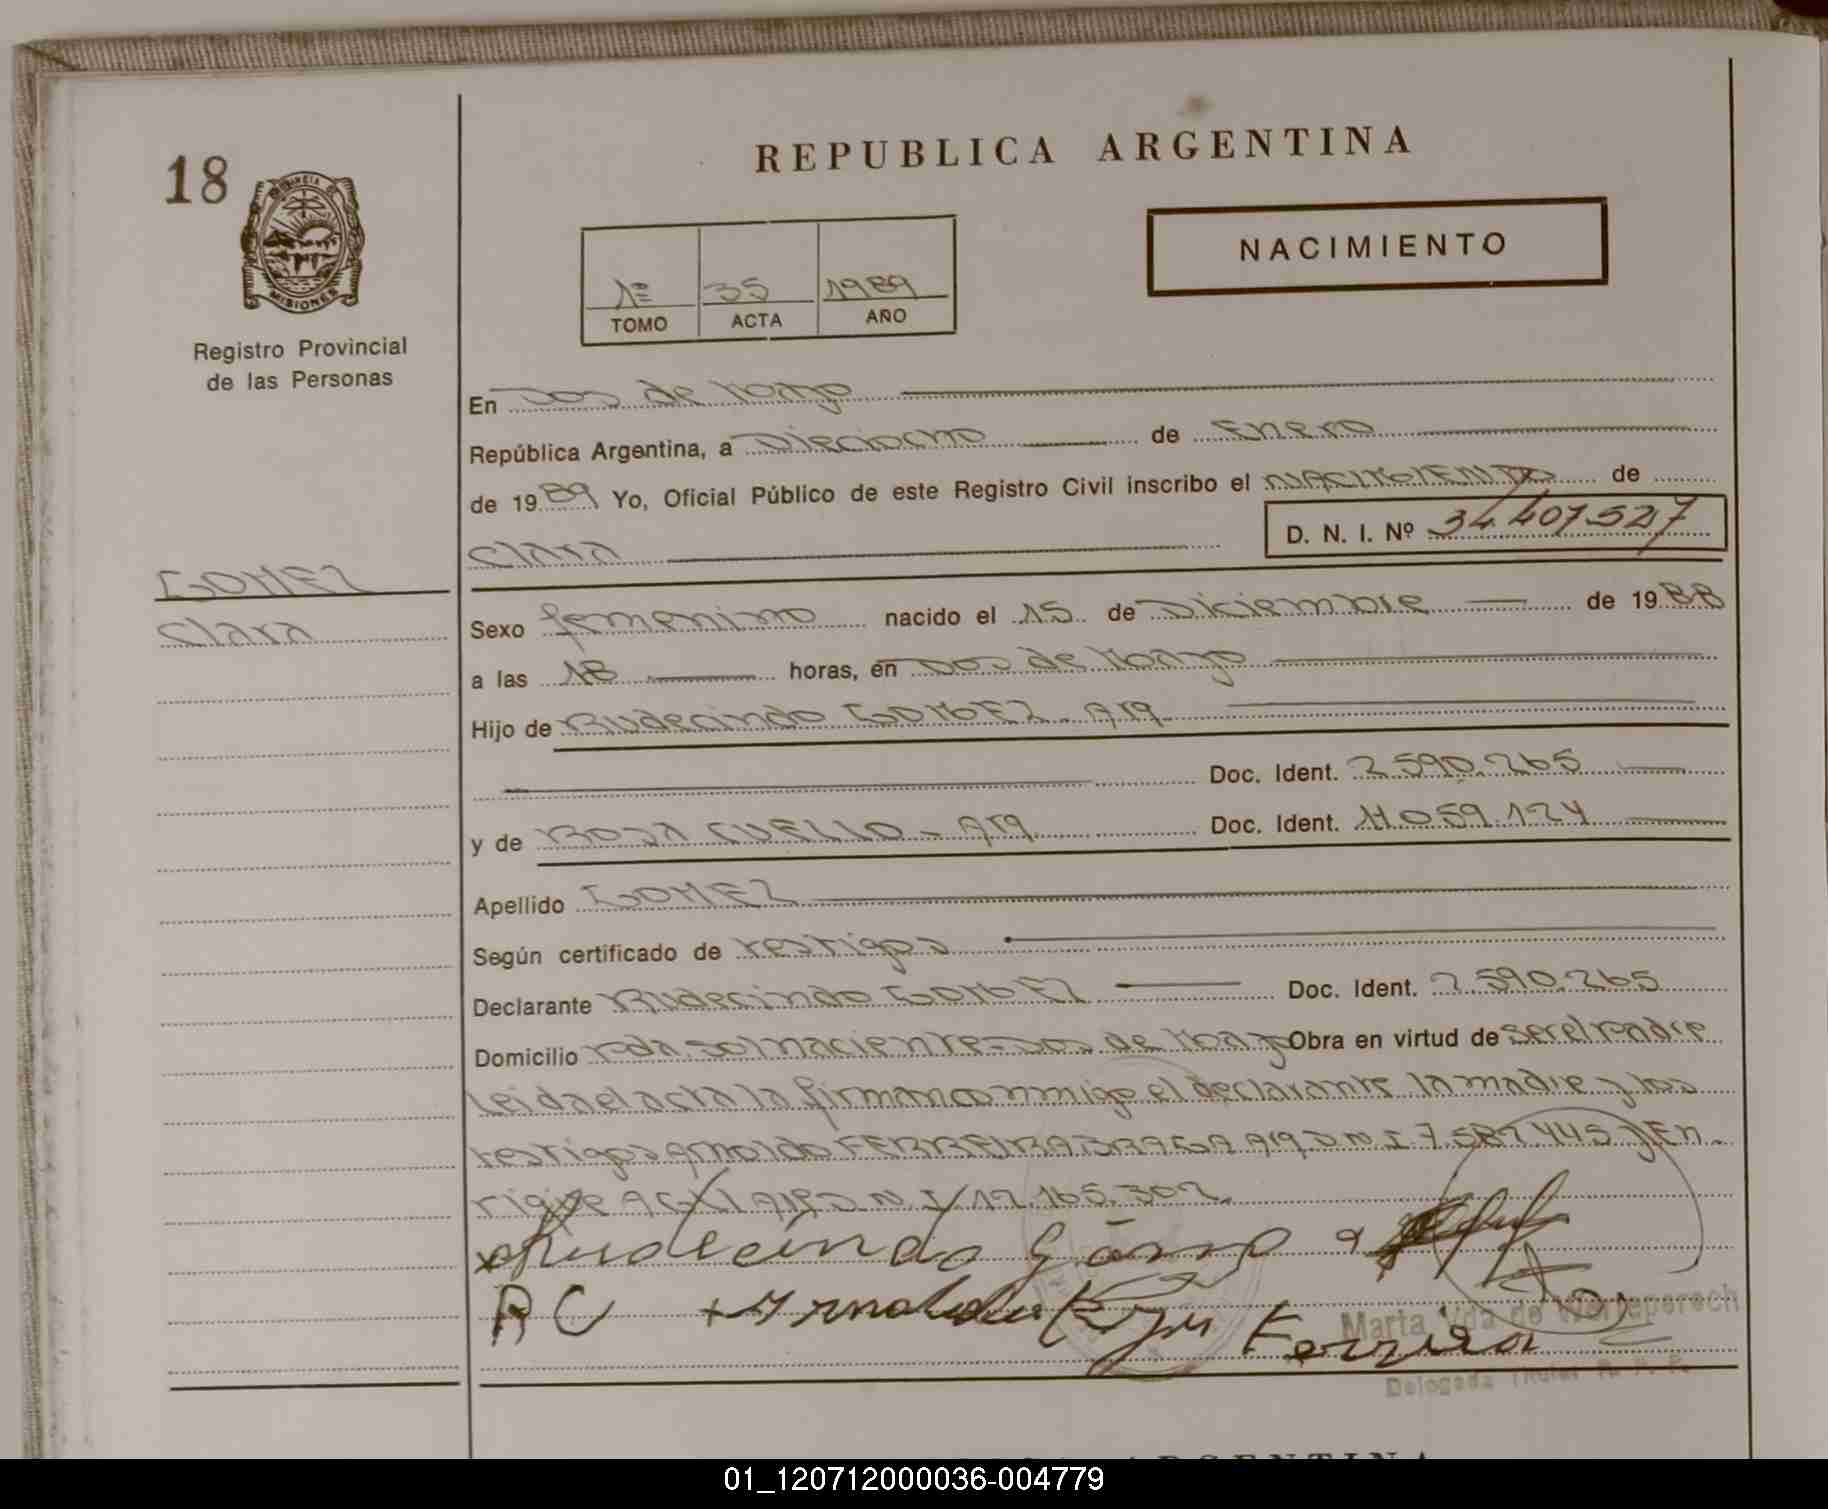 18
PROVINCIA DE
MISIONES
Registro Provincial
de las Personas
GOMEZ
Clara
REPUBLICA ARGENTINA
NACIMIENTO
1º 35 1989
TOMO ACTA AÑO
En Dos de Mayo
República Argentina, a Dieciocho de Enero
de 1989 Yo, Oficial Público de este Registro Civil inscribo el NACIMIENTO de
Clara D. N. I. Nº 34.407.527
Sexo femenino nacido el 15 de Diciembre de 1988
a las 18 horas, en Dos de Mayo
Hijo de Rudecindo GOMEZ - Arg.
Doc. Ident. 7.590.265
y de Rosa CUELLO - Arg. Doc. Ident. 11.059.124
Apellido GOMEZ
Según certificado de testigos
Declarante Rudecindo GOMEZ Doc. Ident. 7.590.265
Domicilio Pda. Sol naciente - Dos de Mayo Obra en virtud de ser el Padre
Leida el acta la firman conmigo el declarante la madre y los
testigos Arnoldo FERREIRA BRAGA Arg. D.N.I. 7.587.445 y En-
rique Arg. D.N.I. 12.165.302.
x Rudecindo Gomes
RC + Arnoldo Ferreira
Marta Vda de
Delegada Titular R. P. P.
ARGENTINA
01_120712000036-004779